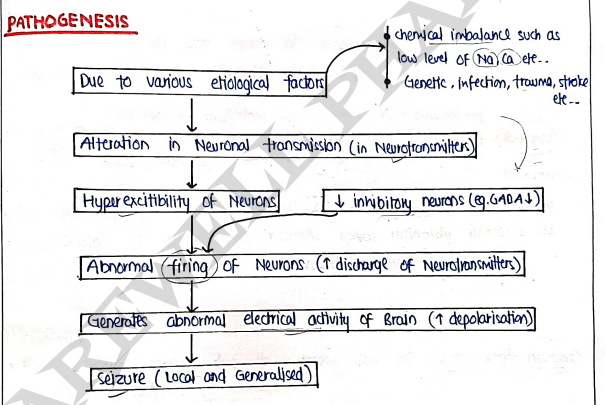 PATHOGENESIS
chemical imbalance such as
low level of Na, Ca etc..
Genetic, infection, trauma, stroke
etc--
Due to various etiological factors
Alteration in Neuronal transmission (in Neurotransmitters)
Hyperexcitibility of Neurons
↓ inhibitory neurons (eg. GADA↓)
Abnormal firing of Neurons (↑ discharge of Neurotransmitters)
Generates abnormal electrical activity of Brain (↑ depolarisation)
Seizure (Local and Generalised)